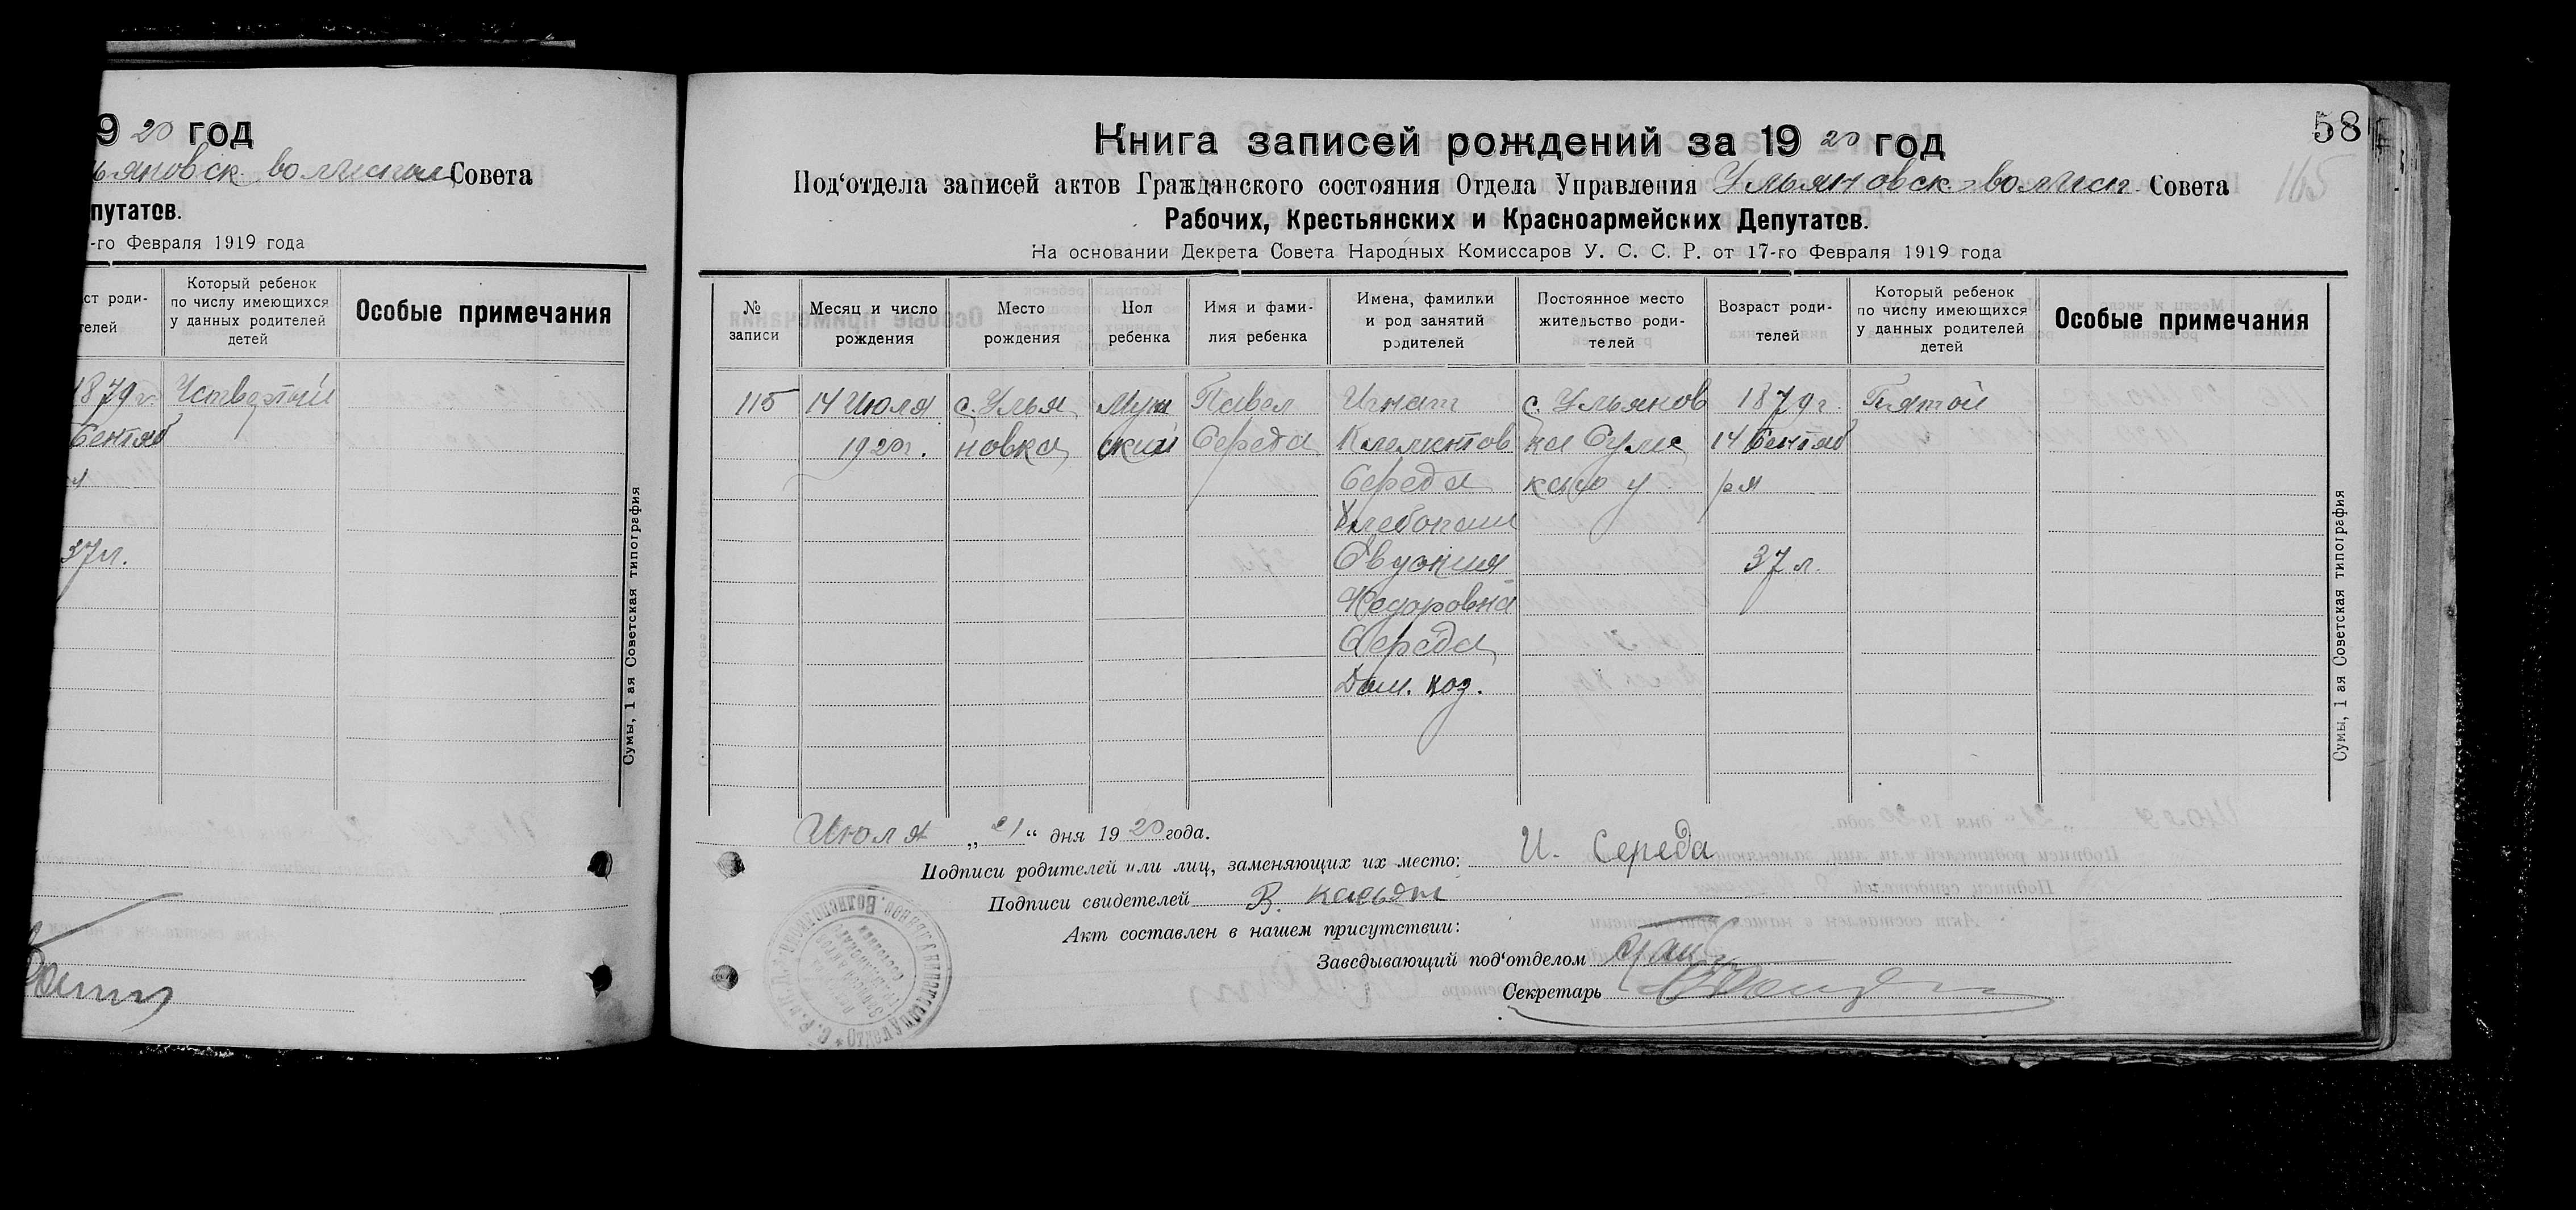 9 20 год
ьяновск. волысполк Совета
путатов.
-го Февраля 1919 года
ст роди-
телей
Который ребенок
по числу имеющихся
у данных родителей
детей
Особые примечания
1879 г. Четвертый
Сентяб
я
37 л.
Сумы, 1 ая Советская типография
58
165
Книга записей рождений за 19 20 год
Под‘отдела записей актов Гражданского состояния Отдела Управления Ульяновск волысп. Совета
Рабочих, Крестьянских и Красноармейских Депутатов.
На основании Декрета Совета Народных Комиссаров У. С. С. Р. от 17-го Февраля 1919 года
№
записи
Месяц и число
рождения
Место
рождения
Пол
ребенка
Имя и фами-
лия ребенка
Имена, фамилки
и род занятий
родителей
Постоянное место
жительство роди-
телей
Возраст роди-
телей
Который ребенок
по числу имеющихся
у данных родителей
детей
Особые примечания
115 14 Июля с. Улья Муж Павел Игнат с. Ульянов 1879 г. Пятый
1920 г. новка ский Середа Климентов ка Сумс 14 Сентяб
Середа каго у. ря
Хлебопаш
Евдокия 37 л.
Федоровна
Середа
Дом. хоз.
Июля „21“ дня 19 20 года.
Подписи родителей или лиц, заменяющих их место: И. Середа
Подписи свидетелей В.
Акт составлен в нашем присутствии:
Заведывающий под‘отделом
Секретарь
Сумы, 1 ая Советская типография